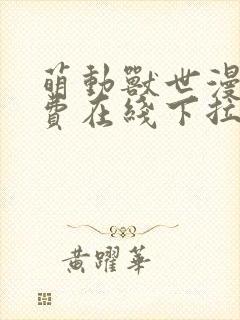 萌動獸世漫
費在綫下拉
黃躍華